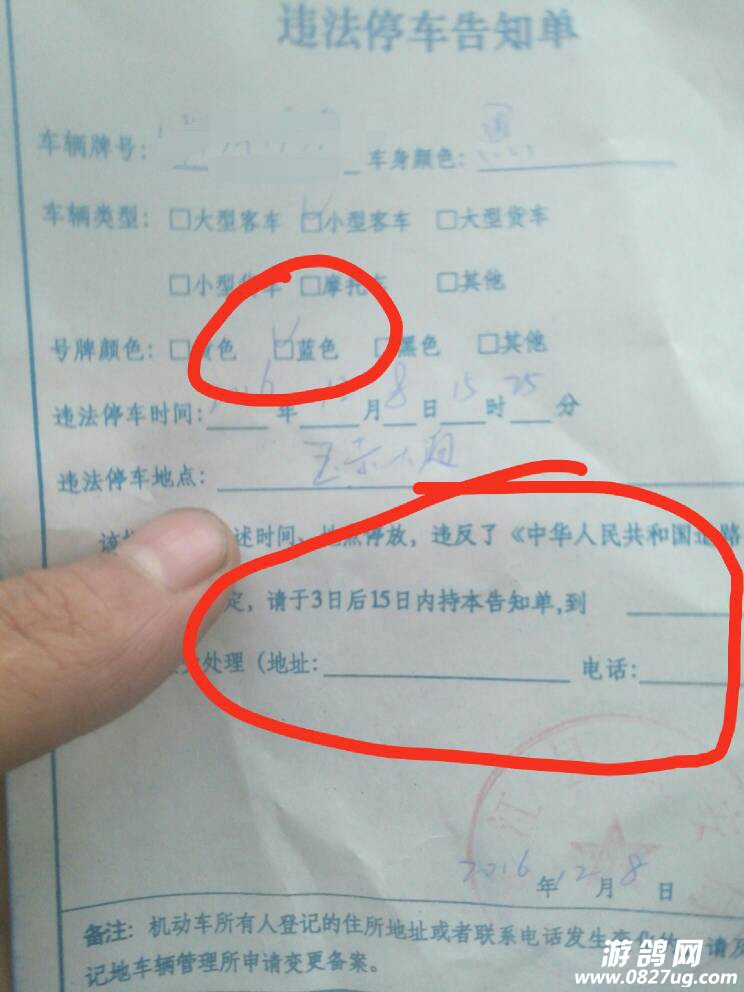 违法停车告知单
车辆牌号: 车身颜色: 黑
车辆类型: □大型客车 □小型客车 □大型货车
□小型货车 □摩托车 □其他
号牌颜色: □黄色 □蓝色 □黑色 □其他
违法停车时间: 2016 年 12 月 8 日 15 时 25 分
违法停车地点:
该 述时间、地点停放，违反了《中华人民共和国道路
定，请于3日后15日内持本告知单,到
处理（地址: 电话:
2016 年 12 月 8 日
备注: 机动车所有人登记的住所地址或者联系电话发生变化的 请及
记地车辆管理所申请变更备案。
游鸽网
www.0827ug.com